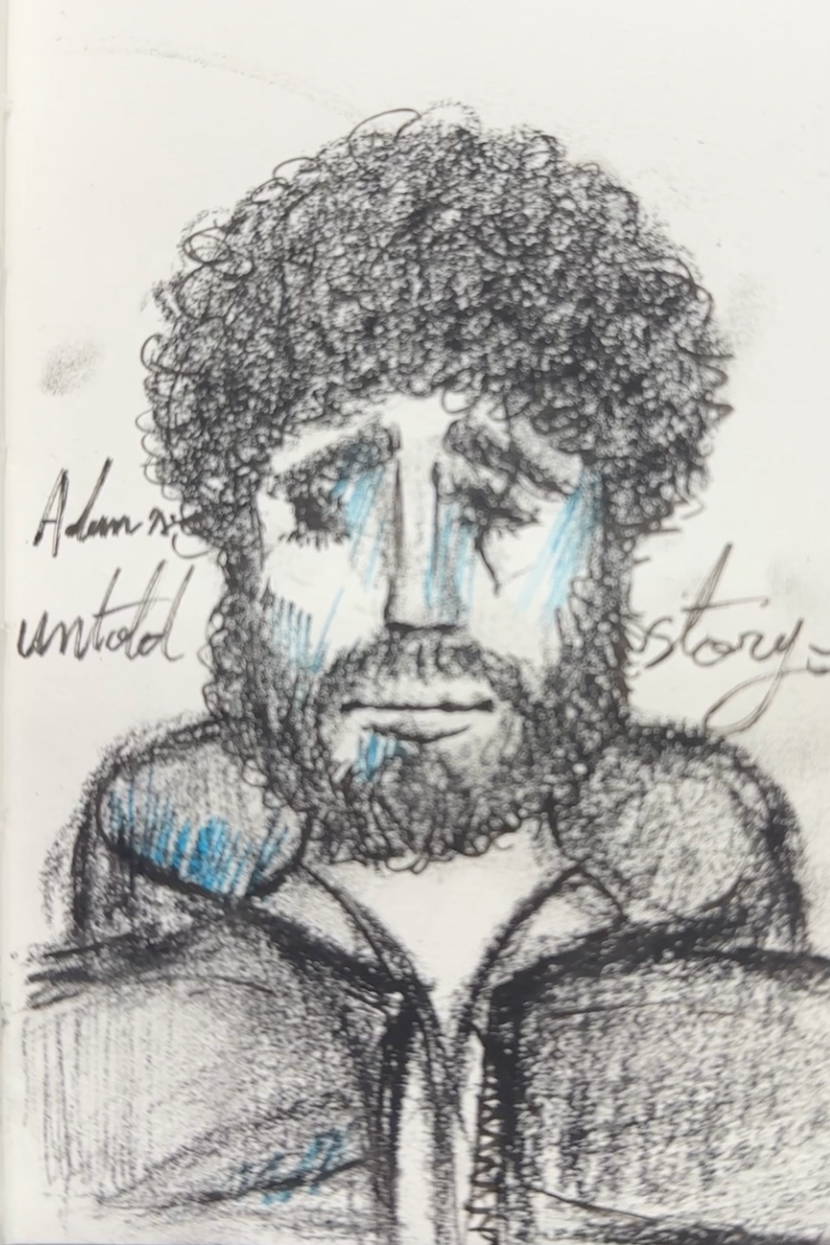 Adam
untold story